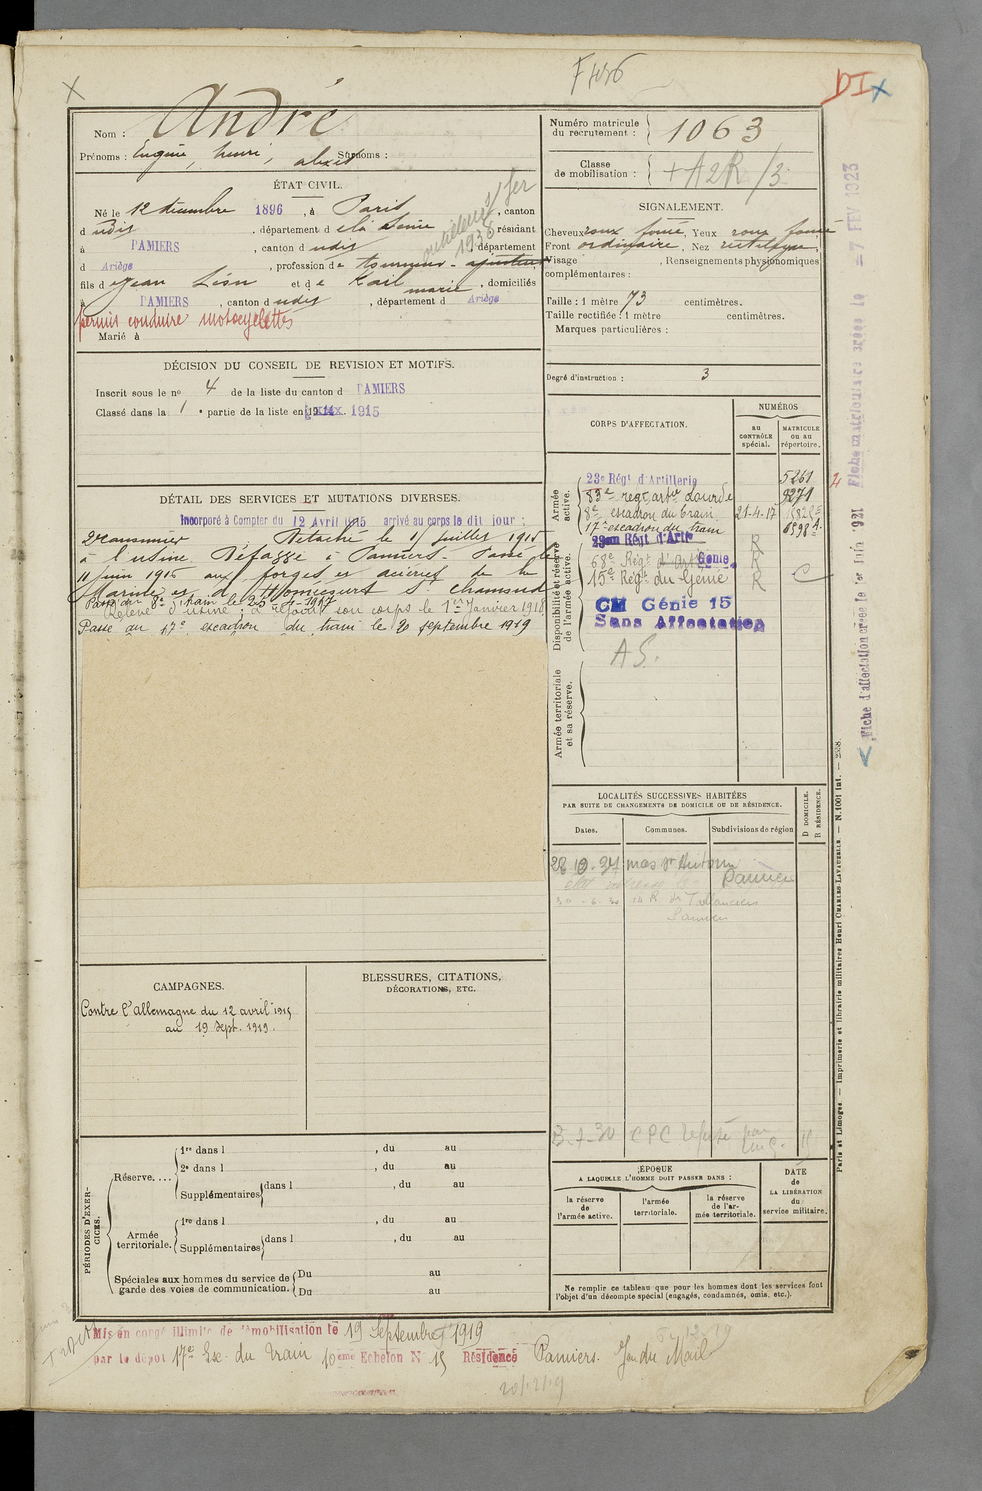 DI
Nom : André
Prénoms : Eugène, henri, alexis Surnoms :
Numéro matricule du recrutement : 1063
Classe de mobilisation :
ÉTAT CIVIL.
Né le 12 décembre 1896, à Paris, canton
d udis, département d e la Seine, résidant
à PAMIERS, canton d udis, département
d Ariège, profession de tourneur - ajusteur
fils d e Jean Léon et d e Kail marie, domiciliés
à PAMIERS, canton d udis, département d Ariège
permis conduire motocyclettes
Marié à
1938
SIGNALEMENT.
Cheveux roux foncé, Yeux roux foncé
Front ordinaire, Nez rectiligne
Visage , Renseignements physionomiques
complémentaires :
Taille : 1 mètre 73 centimètres.
Taille rectifiée : 1 mètre centimètres.
Marques particulières :
Degré d'instruction : 3
DÉCISION DU CONSEIL DE REVISION ET MOTIFS.
Inscrit sous le no 4 de la liste du canton d PAMIERS
Classé dans la 1 e partie de la liste en 1915
DÉTAIL DES SERVICES ET MUTATIONS DIVERSES.
Incorporé à Compter du 12 Avril 1915 arrivé au corps le dit jour :
2e canonnier Détaché le 11 Juillet 1915
à l'usine Défazze à Pamiers. Passé le
11 Juin 1916 aux forges et aciéries de la
Marine et d'Homécourt St Chamond
Passé au 8e d. train le 20-4-1917
Relevé d'usine ; a rejoint son corps le 1er Janvier 1918
Passé au 17e escadron du train le 20 septembre 1919
CORPS D'AFFECTATION.
NUMÉROS
au CONTRÔLE spécial.
MATRICULE ou au répertoire.
Armée active.
23e Régt d'Artillerie 5261
83e regt arte Lourde 9271
8e escadron du train 21-4-17
17e escadron du train
Disponibilité et réserve de l'armée active.
23em Régt d'Artie R
68e Régt d'artie Génie. R
15e Régt du Génie R
CM Génie 15
Sans Affectation
A S.
Armée territoriale et sa réserve.
LOCALITÉS SUCCESSIVES HABITÉES
PAR SUITE DE CHANGEMENTS DE DOMICILE OU DE RÉSIDENCE.
Dates.
Communes.
Subdivisions de région
D DOMICILE.
R RÉSIDENCE.
mas St Antonin
Pamiers
Pamiers
CAMPAGNES.
Contre l'allemagne du 12 avril 1915
au 19 Sept. 1919.
BLESSURES, CITATIONS,
DÉCORATIONS, ETC.
PÉRIODES D'EXERCICES.
Réserve....
1re dans l , du au
2e dans l , du au
Supplémentaires dans l , du au
Armée territoriale.
1re dans l , du au
Supplémentaires dans l , du au
Spéciales aux hommes du service de garde des voies de communication.
Du au
Du au
ÉPOQUE
A LAQUELLE L'HOMME DOIT PASSER DANS :
la réserve de l'armée active.
l'armée territoriale.
la réserve de l'armée territoriale.
DATE de LA LIBÉRATION du service militaire.
Ne remplir ce tableau que pour les hommes dont les services font
l'objet d'un décompte spécial (engagés, condamnés, omis, etc.).
Mis en congé illimité de démobilisation le 19 Septembre 1919
par le dépôt 17e Esc. du Train 10eme Echelon N° 15 Résidence Pamiers.
Fiche matriculaire créée le -7 FEV 1923
Fiche d'affectation créée le 1er Juin 1921
Paris et Limoges. — Imprimerie et librairie militaires Henri CHARLES-LAVAUZELLE. — N. 1001 Int.